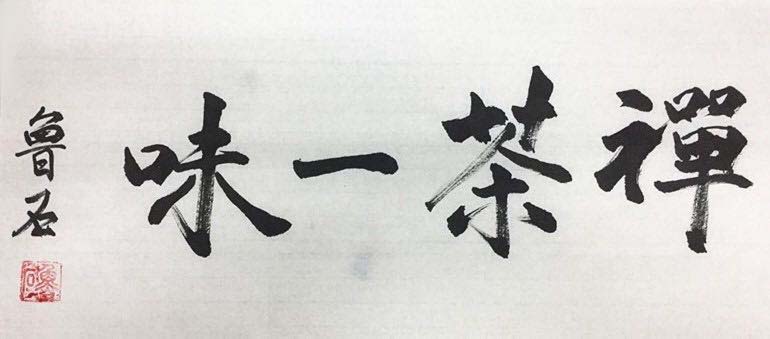 禪茶一味
魯石